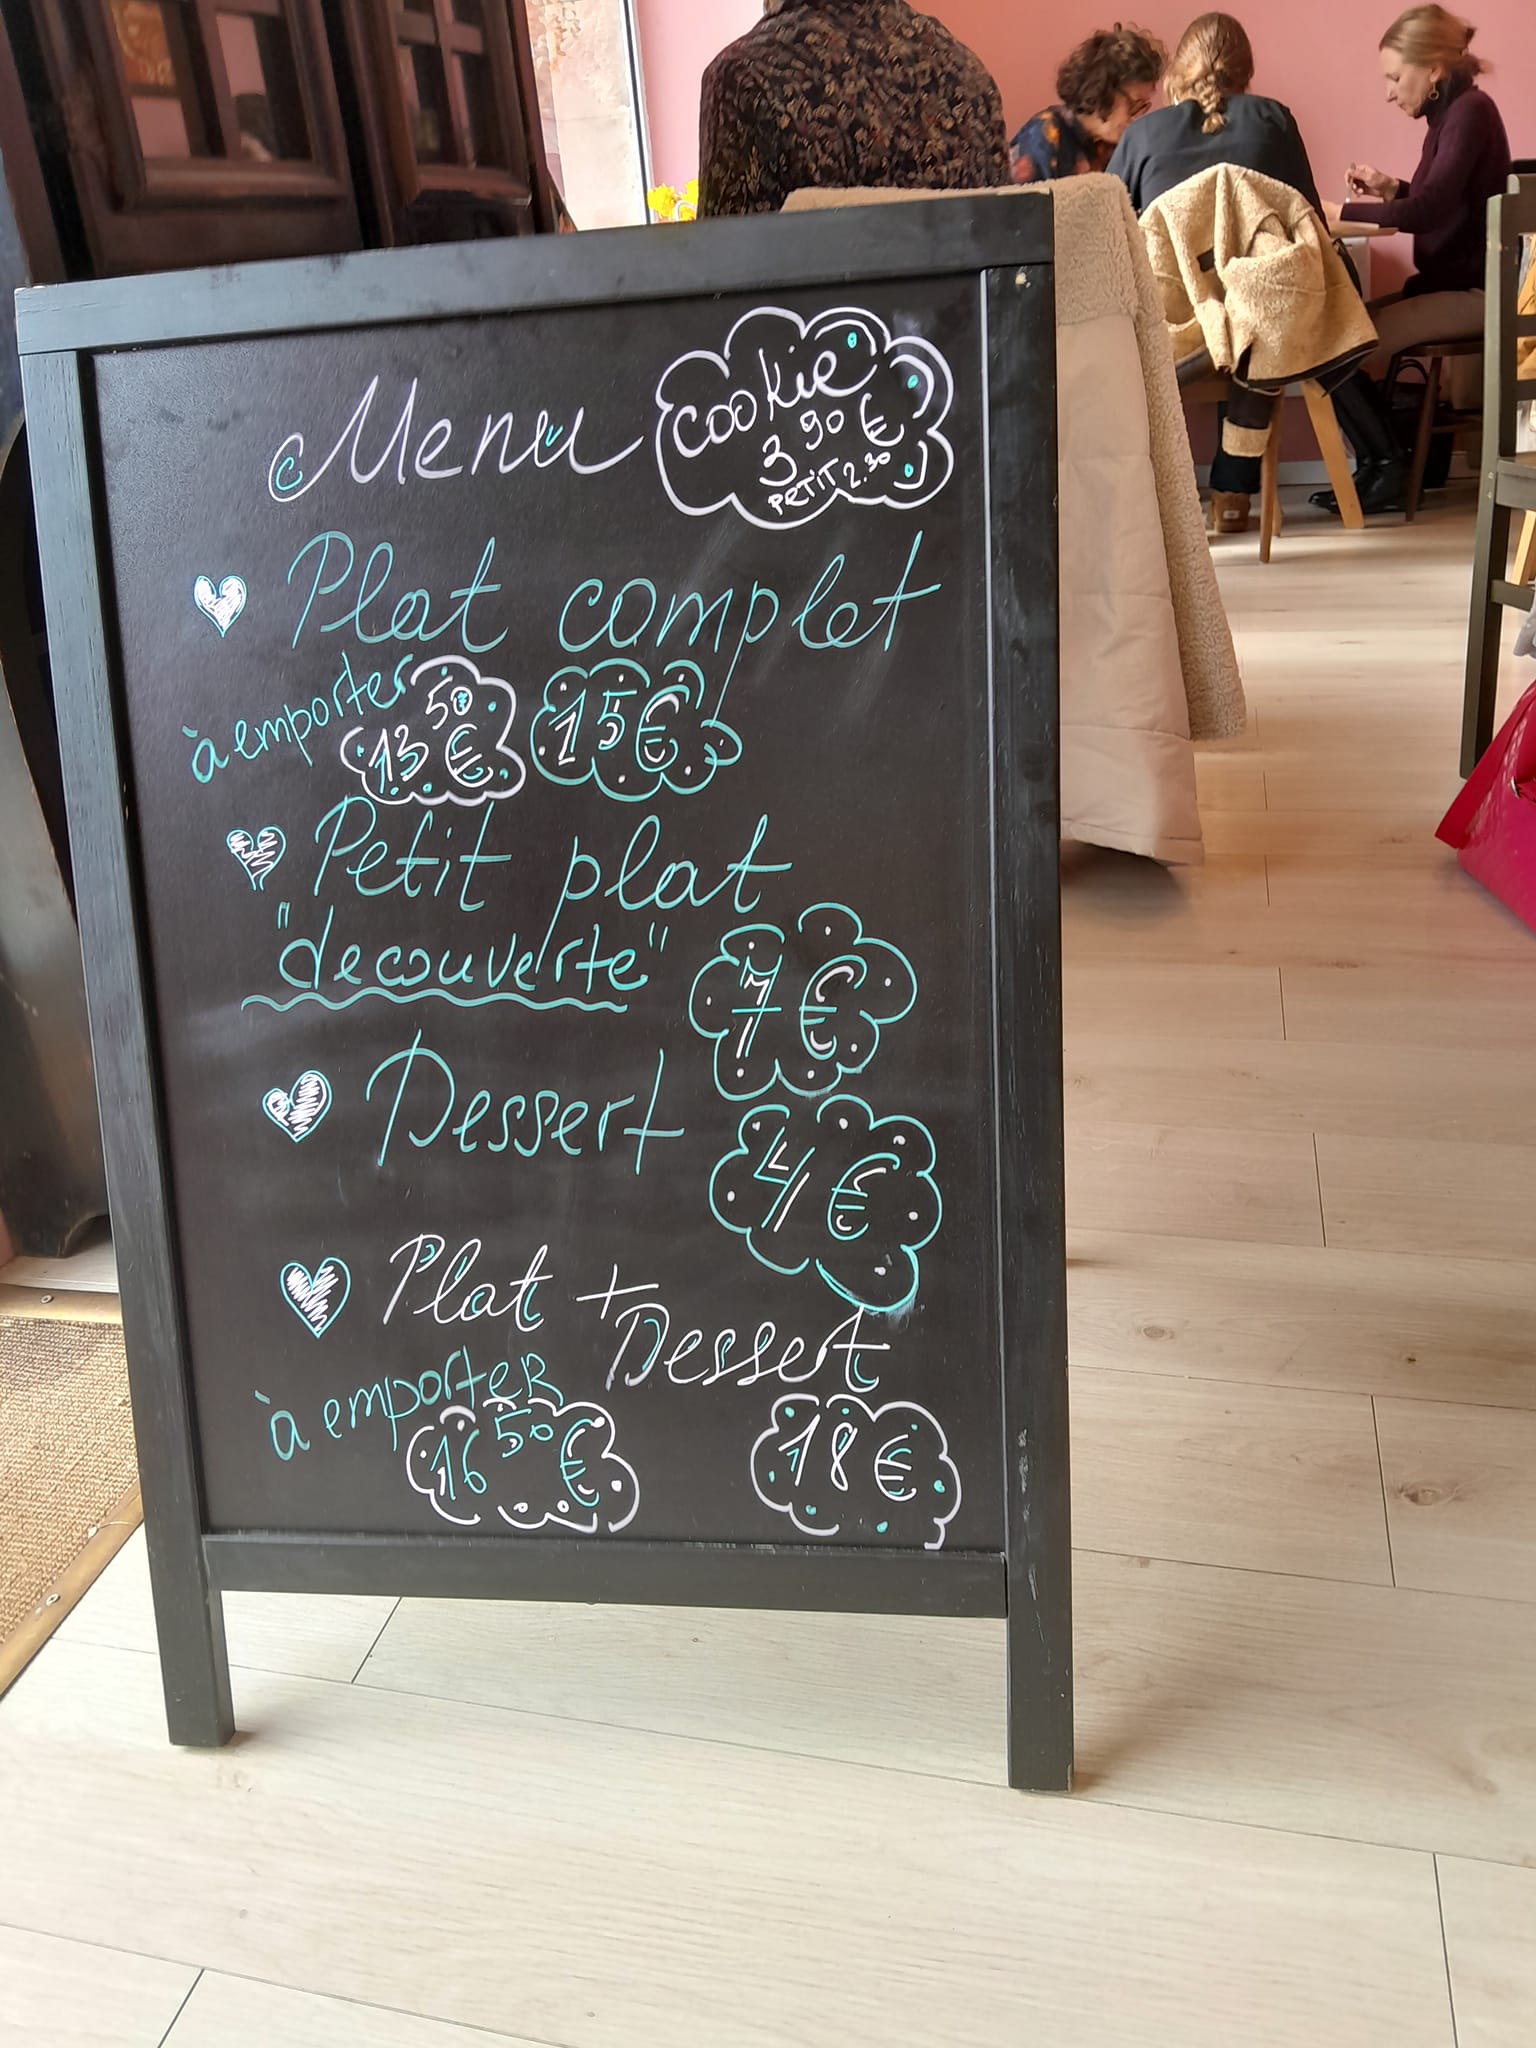 Menu
cookie
3 90 €
PETIT 2.30
Plat complet
à emporter 13 50 € 15€
Petit plat
"decouverte"
7€
Dessert
4€
Plat +
Dessert
à emporter
16 50 € 18€